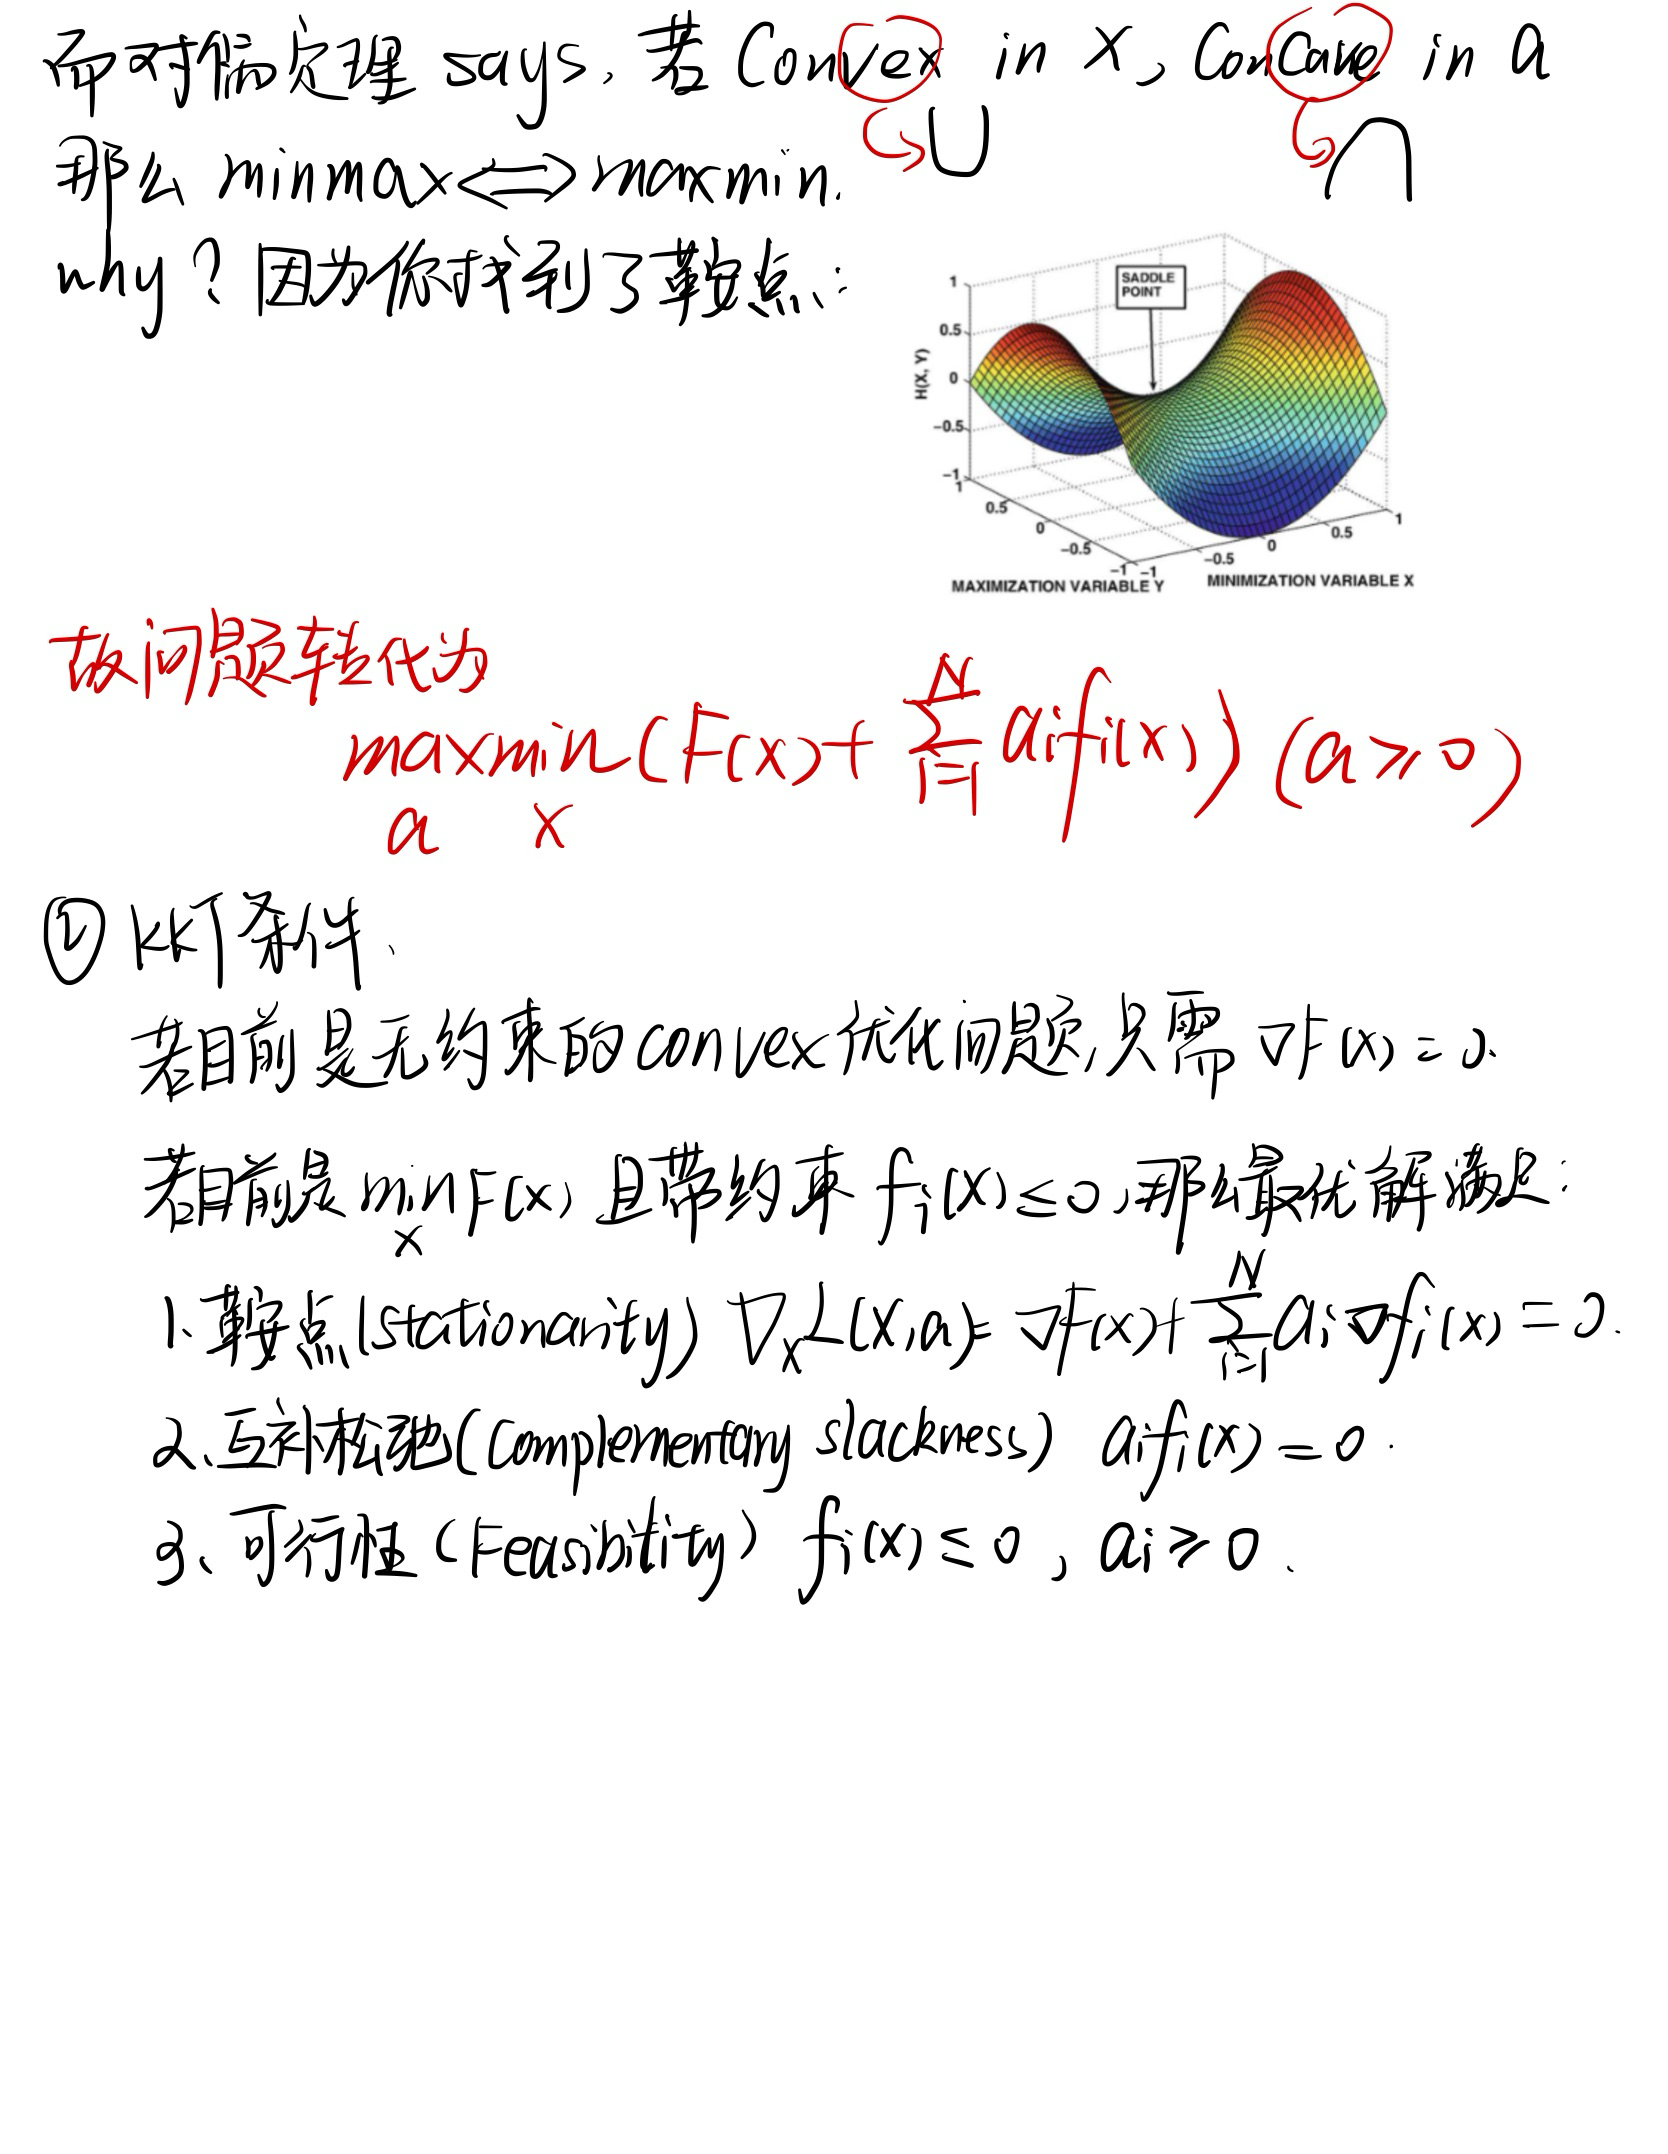 而对偶定理 says, 若 Convex in x, Concave in a
那么 minmax⟺maxmin.
why? 因为你找到了鞍点:
SADDLE
POINT
H(X, Y)
1
0.5
0
−0.5
−1
1
0.5
0
−0.5
−1
−1
−0.5
0
0.5
1
MAXIMIZATION VARIABLE Y
MINIMIZATION VARIABLE X
故问题转化为
max_a min_x (F(x)+∑_{i=1}^{N} a_i f_i(x)) (a≥0)
② KKT条件、
若目前是无约束的convex优化问题,只需 ∇F(x)=0.
若目前是 min_x F(x) 且带约束 f_i(x)≤0,那么最优解满足:
1、鞍点(Stationarity) ∇_x L(x,a)= ∇F(x)+∑_{i=1}^{N} a_i ∇f_i(x)=0.
2、互补松弛(Complementary slackness) a_i f_i(x)=0.
3、可行性(Feasibility) f_i(x)≤0, a_i≥0.